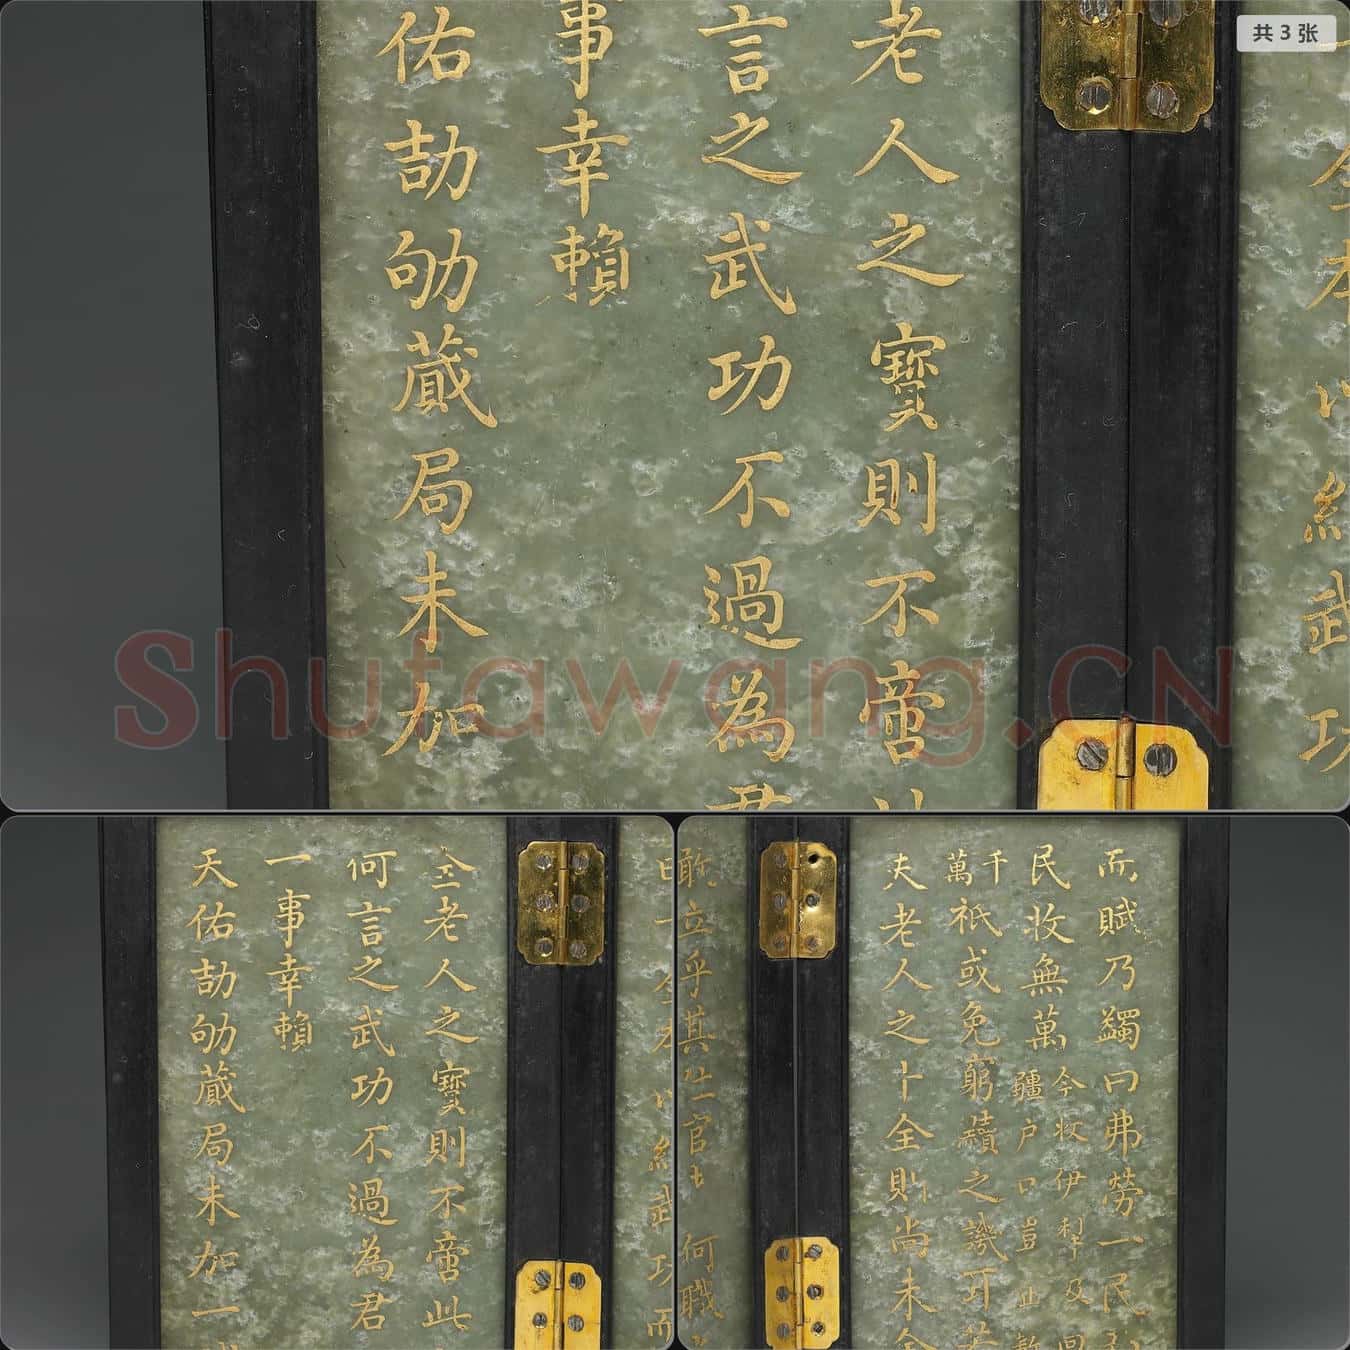 共 3 张
老人之寶則不啻
言之武功不過為君
事幸賴
佑劼劬蕆局未加
以
武
功
Shufawang.CN
全老人之寶則不啻此
何言之武功不過為君
一事幸賴
天佑劼劬蕆局未加一
而
武
功
而賦乃蠲曰弗勞一民
民牧無萬
今牧伊犁及回
疆戶口豈止數
千
萬祇或免窮黷之譏耳若
夫老人之十全則尚未全
立乎其
何職